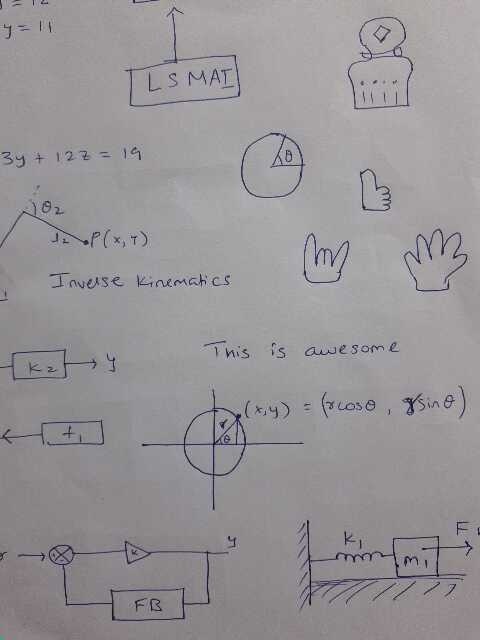 y = 11
LSMAI
3y + 12z = 19
θ
θ2
l2 P(x, y)
Inverse kinematics
This is awesome
K2 y
(x,y) = (rcosθ, rsinθ)
r
θ
t1
F
K1
m1
y
K
FB